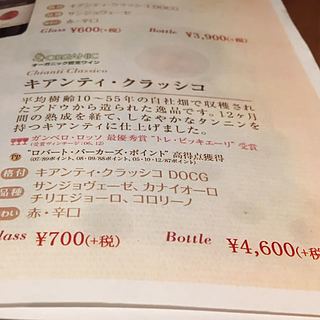 キアンティ・クラッシコ DOCG
サンジョヴェーゼ
赤・辛口
Glass ¥600(+税) Bottle ¥3,900(+税)
オーガニック認定ワイン
Chianti Classico
キアンティ・クラッシコ
平均樹齢10~55年の自社畑で収穫され
たブドウから造られた逸品です。12ヶ月
間の熟成を経て、しなやかなタンニンを
持つキアンティに仕上げました。
ガンベロ・ロッソ 最優秀賞 "トレ・ビッキエーリ" 受賞
(受賞ヴィンテージ:06、12)
"ロバート・パーカーズ・ポインド" 高得点獲得
(07/89ポイント、08・09/88ポイント、05・10、12/87ポイント)
格付 キアンティ・クラッシコ DOCG
品種 サンジョヴェーゼ、カナイオーロ
チリエジョーロ、コロリーノ
わい 赤・辛口
lass ¥700(+税) Bottle ¥4,600(+税)